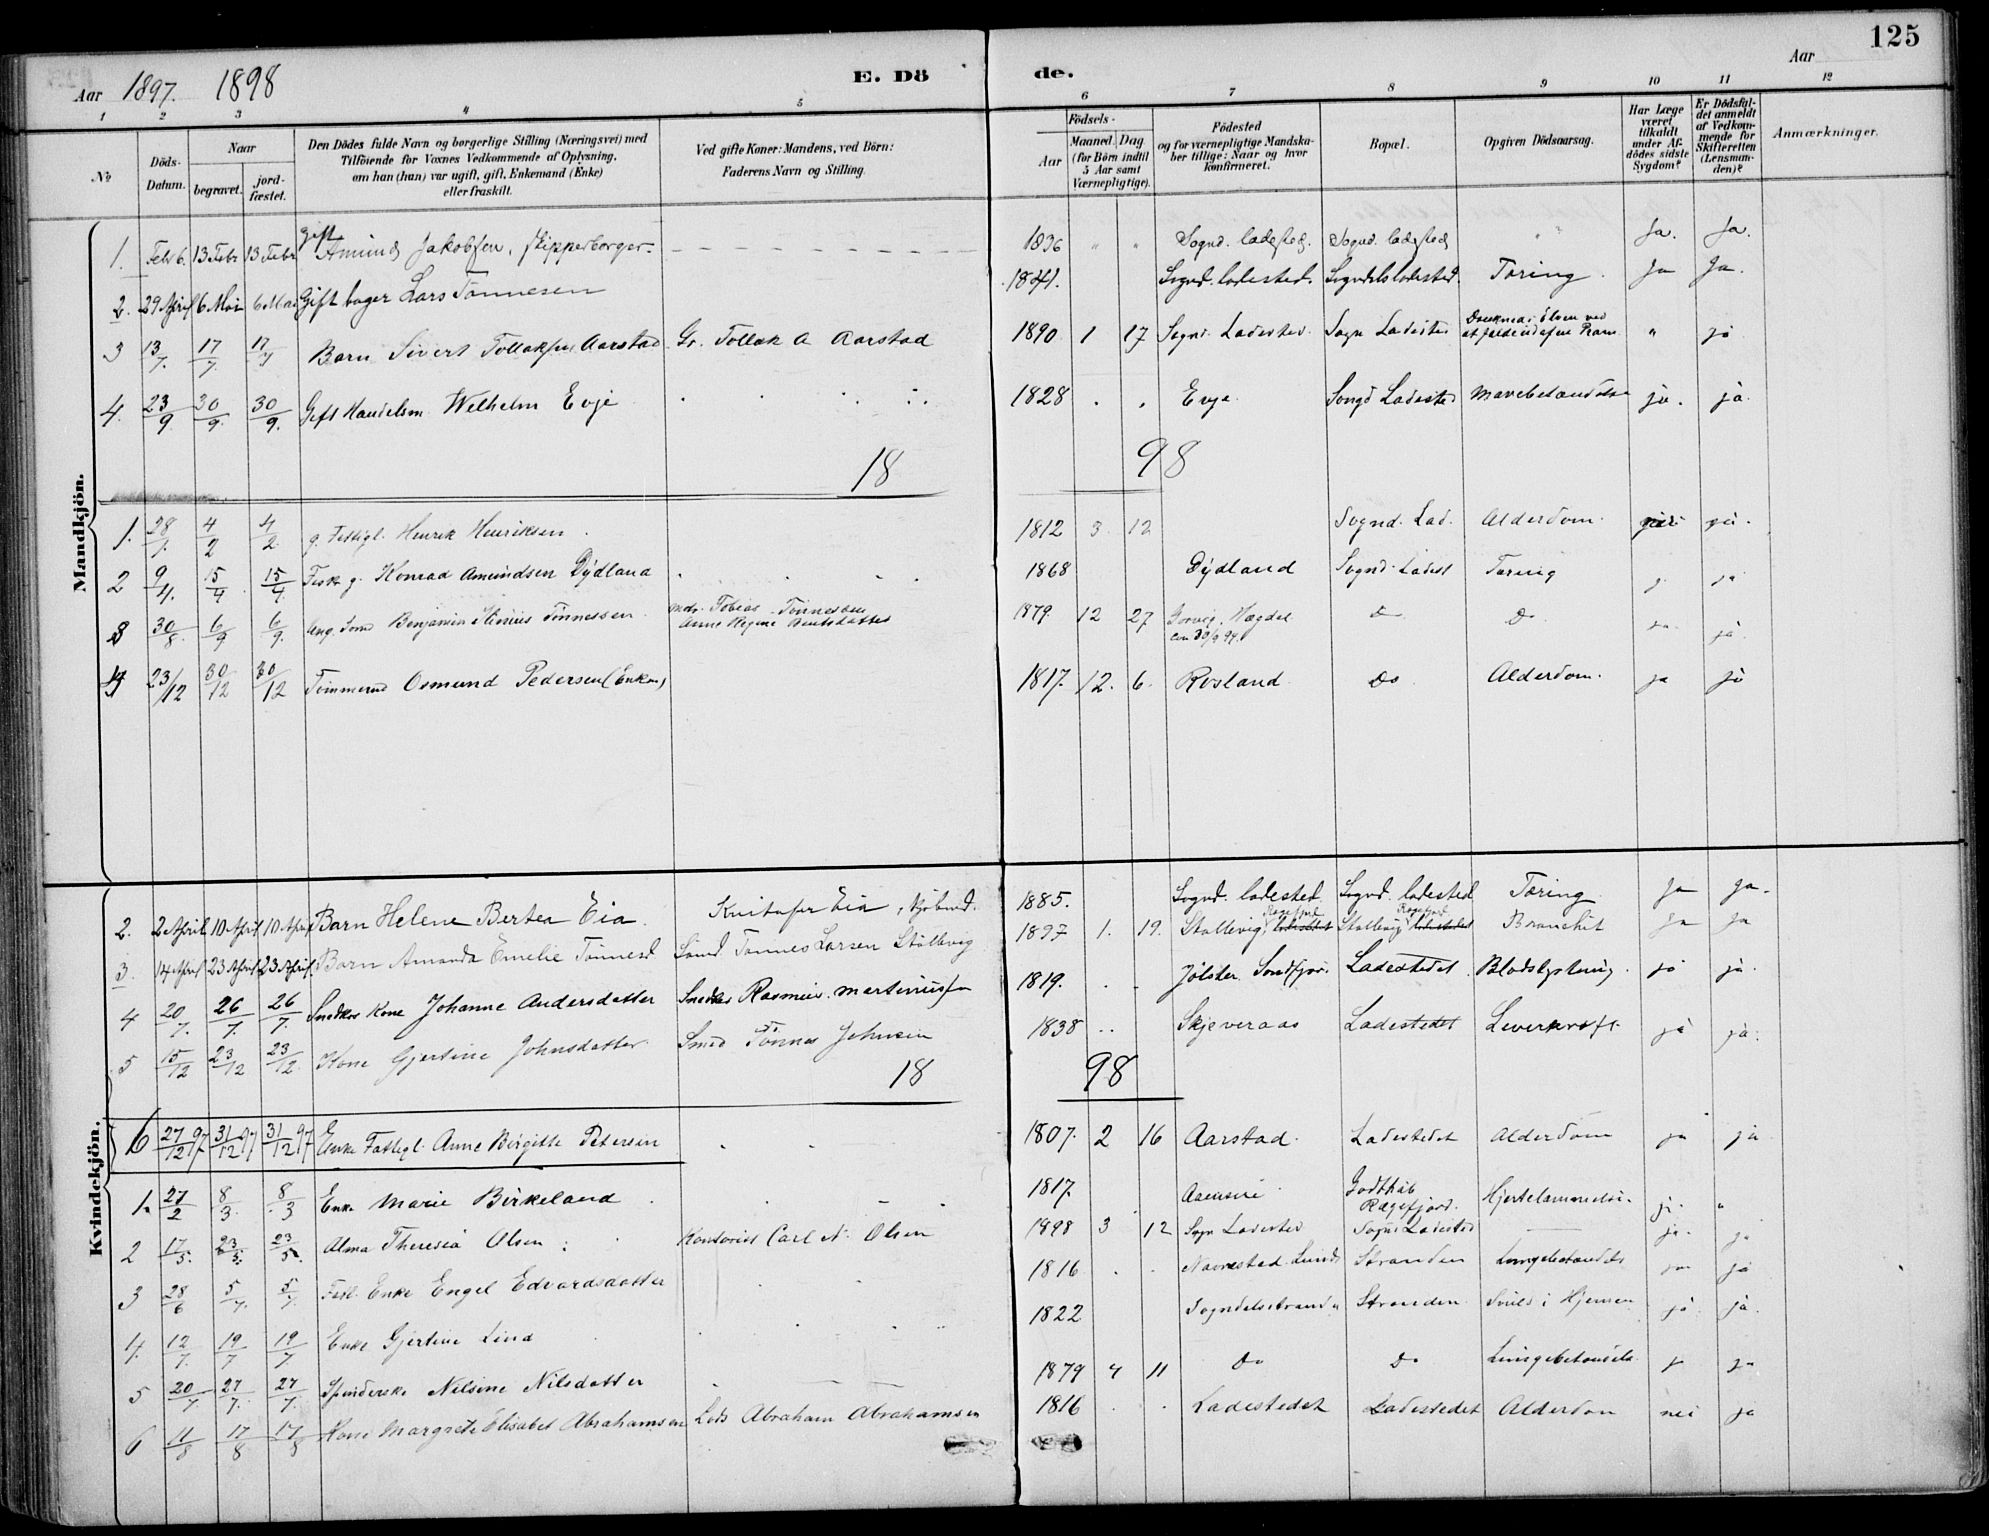 125
Aar 1897. 1898 E. Dö de. Aar
1 2 3 4 5 6 7 8 9 10 11 12
№ Döds-Datum. Naar begravet. jord-fæstet. Den Dödes fulde Navn og borgerlige Stilling (Næringsvei) med Tilföiende for Voxnes Vedkommende af Oplysning, om han (hun) var ugift, gift, Enkemand (Enke) eller fraskilt. Ved gifte Koner: Mandens, ved Börn: Faderens Navn og Stilling. Födsels- Aar Maaned. Dag (for Börn indtil 5 Aar samt Værnepligtige). Födested og for værnepligtige Mandskaber tillige: Naar og hvor konfirmeret. Bopæl. Opgiven Dödsaarsag. Har Læge været tilkaldt under Afdödes sidste Sygdom? Er Dödsfaldet anmeldt af Vedkommende for Skifteretten (Lensmanden)? Anmærkninger.
Mandkjön.
1. Febr 6. 13 Febr 13 Febr gift Amund Jakobsen, skipperborger. 1836 " " Sognd. ladested. Sognd. ladested " Ja. Ja.
2. 29 April 6 Mai 6 Mai Gift bager Lars Tönnesen 1841. Sognd. ladested. Sogndals ladested. Tæring. Ja Ja.
3 13/7. 17/7 17/7 Barn Sivert Tollaksen Aarstad Gr. Tollak A Aarstad 1890 1 17 Sognd. Ladested Sogn Ladested ved at falde ud af en Pram. " ja
4. 23/9 30/9. 30/9. Gift Handelsm Welhelm Evje 1828 . . Evje. Songd Ladested Mavebetændelse ja. ja.
18 98
1. 28/1. 4/2 4/2 g. Fattigl. Henrik Henriksen. 1812 3 12 Sognd. Lad. Alderdom. ja.
2 9/4. 15/4 15/4 Fisk g. Konrad Amundsen Dydland 1868 Dydland Sognd. Ladest Tæring j. ja
3 30/8. 6/9 6/9. Ung. Benjamin Tönnessen Tobias Tönnessen Anne Regine 1879. 12 27 Hægdel 94. Do Do ja. ja.
4 23/12 30/12 30/12 Tömmermd Osmund Pedersen (Enkem) 1817. 12. 6. Rosland. Do Alderdom. ja ja
Kvindekjön.
2. 2 April 10 April 10 April Barn Helene Bertea Eia. Kristofer Eia, 1885. Sognd. ladested. Sognd. ladested Tæring. Ja Ja.
3. 14 April 23 April 23 April. Barn Amanda Emelie Tönnesd Tönnes Larsen Stöllevig 1897 1. 19. Stöllevig, Rægefjord ladestedet Stöllevig Rægefjord ladestedet Bronchit ja ja
4 20/7. 26/7. 26/7. Snedkers Kone Johanne Andersdatter Snedker Rasmus Martiniussen 1819. . Jölster Söndfjor. Ladestedet. Blodstyrtning. ja ja.
5 15/12 23/12 23/12. Kone Gjertine Johnsdatter. Smed Tönnes Johnsen 1838 .. Skjeveraas Ladestedet Leverkræft. ja ja.
18 98
6 27/12 97 31/12 97 31/12 97 Enke Fattigl. Anne Birgitte Petersen 1807. 2 16 Aarstad. Ladestedet Alderdom ja ja
1. 27/2 8/3. 8/3 Enke Marie Birkeland 1817. Godthåb Rægefjord. Hjertelammelse. ja. "
2 17/5. 23/5. 23/5. Alma Theresia Olsen Carl N. Olsen 1898 3 12 Sogn Ladested Sogn Ladested ja. ja
3 28/6 5/7. 5/7. Enke Engel Edvardsdatter 1816 . . Lund Stranden Lungebetændels ja ja
4. 12/7. 19/7 19/7 Enke Gjertine Lind 1822 Sogndalsstrand Stranden Svuls i Hjernen ja ja.
5 20/7 27/7. 27/7. Spinderske Nilsine Nilsdatter 1879 4 11 Do Do Lungebetændels. j ja
6 11/8 17/8 17/8 Kone Margrete Elisabet Abrahamsen Lods Abraham Abrahamsen 1816 . . Ladestedet Ladestedet Alderdom nei ja